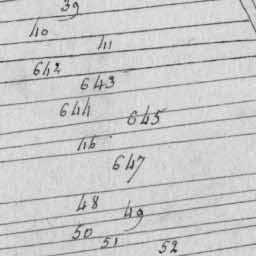 39
40
41
642
643
644
645
46
647
48
49
50
51
52